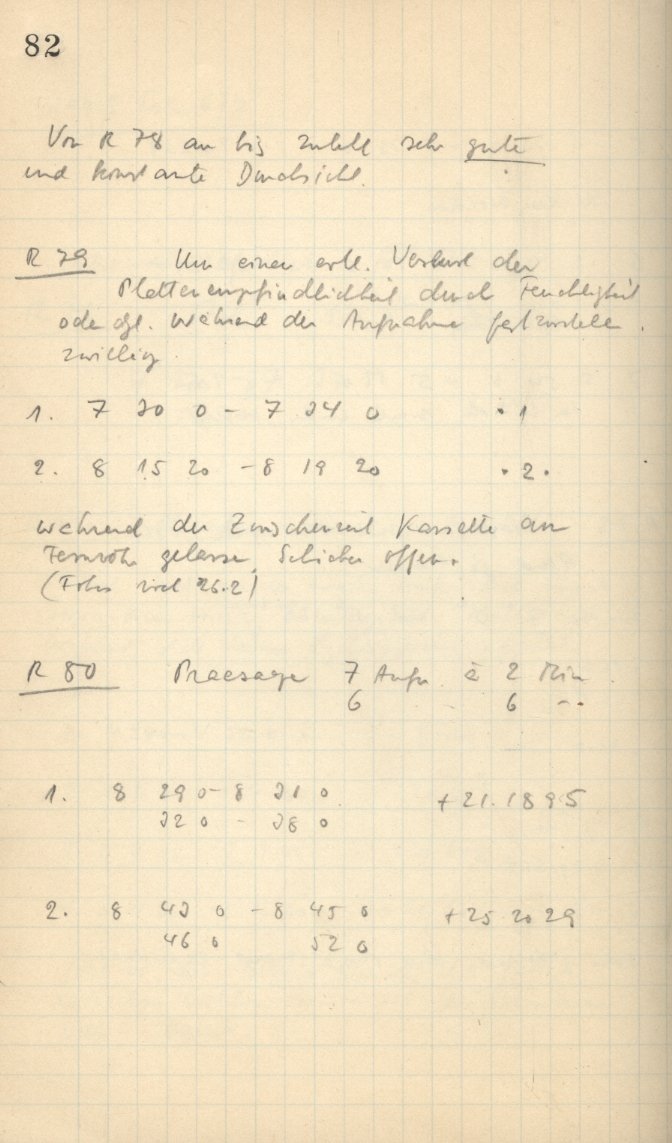 82
Von R 78 an bis zuletzt sehr gute
und konstante Durchsicht.
R 79 Um einen evtl. Verlust der
Plattenempfindlichkeit durch Feuchtigkeit
oder dgl. während der Aufnahme festzustellen.
zwillig
1. 7 20 0 - 7 24 0 • 1
2. 8 15 20 - 8 19 20 • 2 •
während der Zwischenzeit Kassette am
Fernrohr gelassen, Schieber offen.
(Fokus 26.2)
R 80 Praesepe 7 Aufn. à 2 Min.
6 " 6 "
1. 8 29 0 - 8 31 0 +21.1895
32 0 - 38 0
2. 8 43 0 - 8 45 0 +25 2029
46 0 52 0